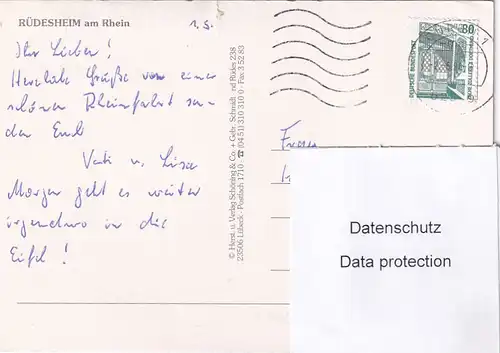 RÜDESHEIM am Rhein
1.5.
Ihr Lieben!
Herzliche Grüße von einer
schönen Rheinfahrt sen-
den Euch
Vati u. Lisa
Morgen geht es weiter
irgendwo in die
Eifel!
© Herst. u. Verlag Schöning & Co. + Gebr. Schmidt
23506 Lübeck · Postfach 1710 · ☎ (04 51) 310 310 0 · Fax 3 52 83
Rüdes 238
80
DEUTSCHE BUNDESPOST
Datenschutz
Data protection